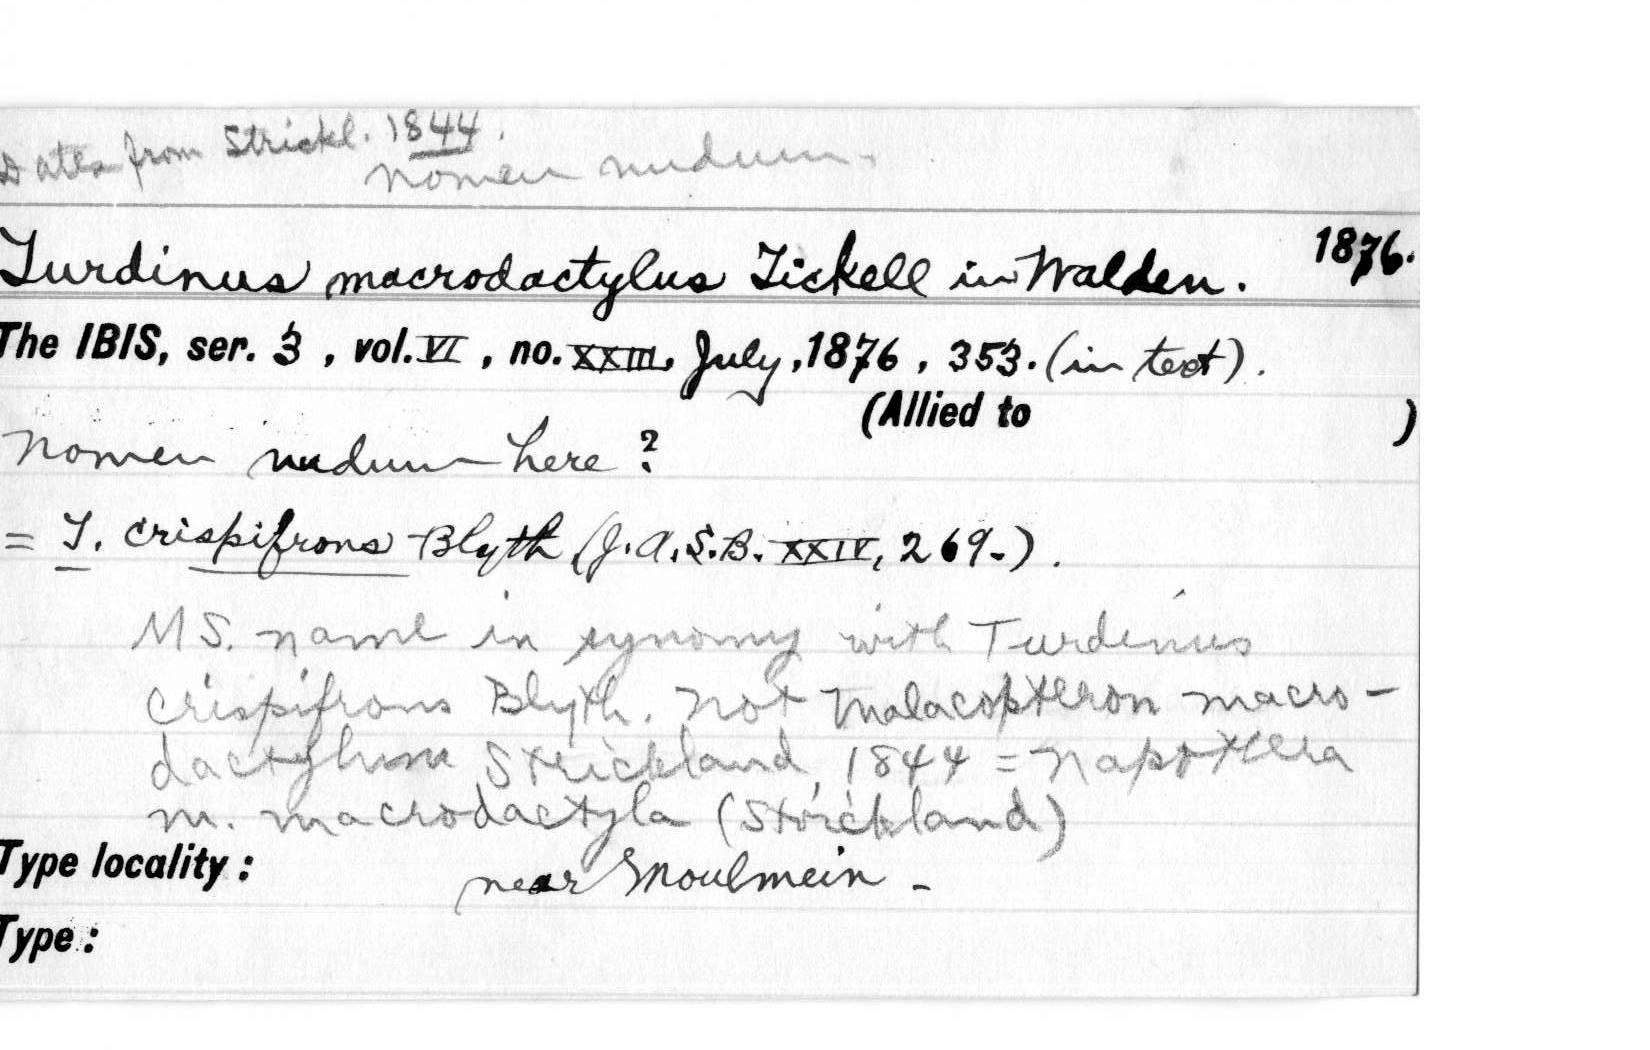 Dates from Strickl. 1844.
nomen nudum.
Turdinus macrodactylus Tickell in Walden. 1876.
The IBIS, ser. 3, vol. VI, no. XXIII, July, 1876, 353. (in text).
(Allied to )
Nomen nudum here?
= T. crispifrons Blyth (J.A.S.B. XXIV, 269-).
MS. name in synomy with Turdinus
crispifrons Blyth. Not Malacopteron macro-
dactylum Strickland, 1844 = Napothera
m. macrodactyla (Strickland)
Type locality: near Moulmein -
Type: